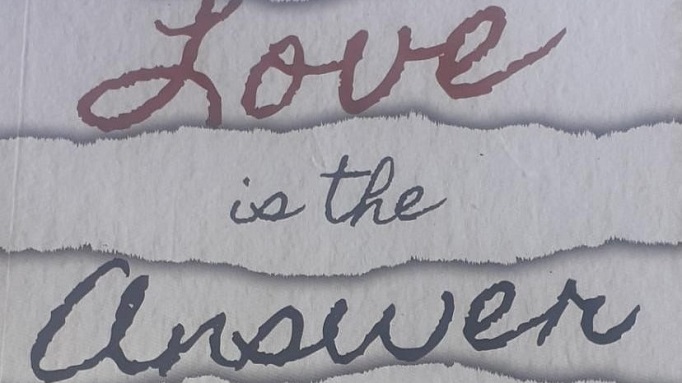 Love
is the
Answer